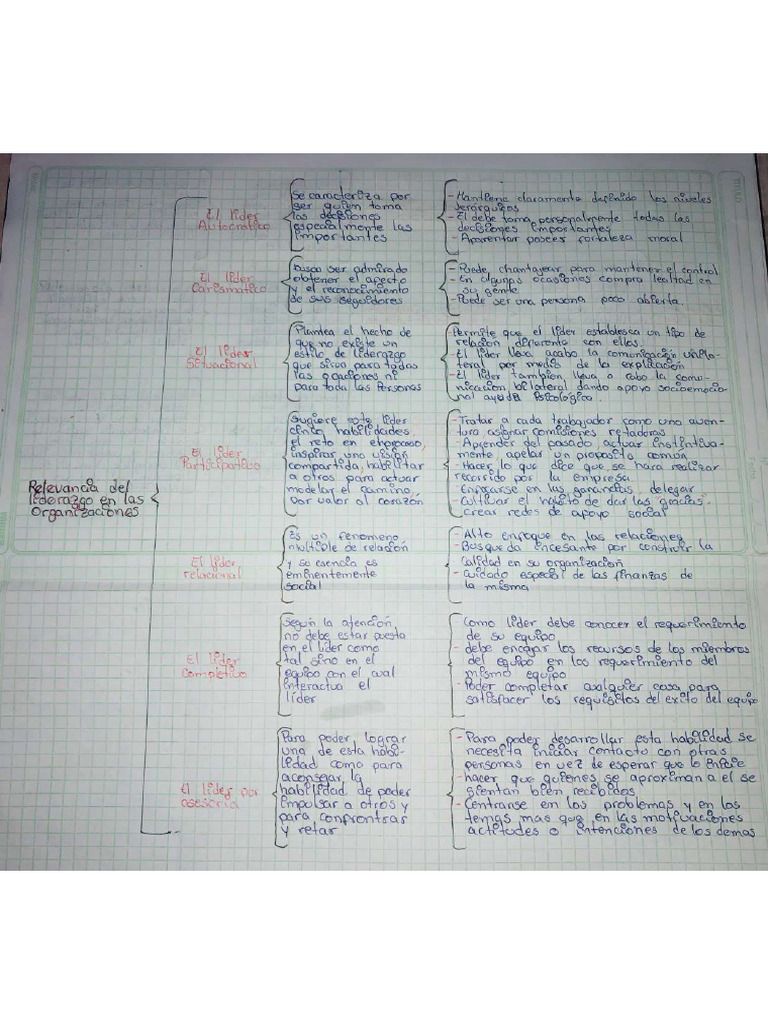 Relevancia del
liderazgo en las
Organizaciones
El lider
Autocratico
Se caracteriza por
ser quien toma
las decisiones
especialmente las
importantes
- Mantiene claramente definido los niveles
jerarquicos
- El debe toma personalmente todas las
decisiones importantes
- Aparentar poseer fortaleza moral
El lider
Carismatico
busca ser admirado
obtener el afecto
y el reconocimiento
de sus seguidores
- Puede chantajear para mantener el control
- En algunos ocasiones compra lealtad en
su gente
- Puede ser una persona poco abierta.
El lider
Situacional
Plantea el hecho de
que no existe un
estilo de liderazgo
que sirva para todas
las ocaciones ni
para toda las Personas
Permite que el lider establesca un tipo de
relacion diferente con ellos.
- El lider lleva acabo la comunicación unila-
teral por medio de la explicación
- El lider tambien lleva a cabo la comu-
nicacion bilateral dando apoyo socioemocio-
nal ayuda Psicologica
El lider
Participativo
Sugiere este lider
cinco habilidades
el reto en el proceso,
inspirar una visión
compartida, habilitar
a otros para actuar
modelar el camino,
Dar valor al corazón
- Tratar a cada trabajador como una aven-
tura asignar comiciones retadoras
- Aprender del pasado, actuar instintiva-
mente, apelar un proposito común
- Hacer lo que dice que se hara realizar
recorrido por la empresa
enfocarse en las ganancias, delegar
- Cultivar el habito de dar las gracias
- crear redes de apoyo social
El lider
relacional
Es un fenomeno
multiple de relación
y se esencia es
eminentemente
social
- Alto enfoque en las relaciones
- Busqueda incesante por construir la
calidad en su organización
- cuidado especial de las finanzas de
la misma
El lider
Completivo
Según la atención,
no debe estar puesta
en el lider como
tal sino en el
equipo con el cual
interactua el
lider
Como lider debe conocer el requerimiento
de su equipo
- debe encajar los recursos de los miembros
del equipo en los requerimiento del
mismo equipo
- Poder completar cualquier cosa para
satisfacer los requisitos del exito del equipo
El lider por
asesoria
Para poder lograr
una de esta habi-
lidad como para
aconsejar la
habilidad de poder
impulsar a otros y
para confrontrar
y retar
- Para poder desarrollar esta habilidad se
necesita iniciar contacto con otras
personas en vez de esperar que lo inicie
- hacer que quienes se aproximan a el se
sientan bien recibidos
- Centrarse en los problemas y en los
temas mas que en las motivaciones
actitudes o intenciones de los demas